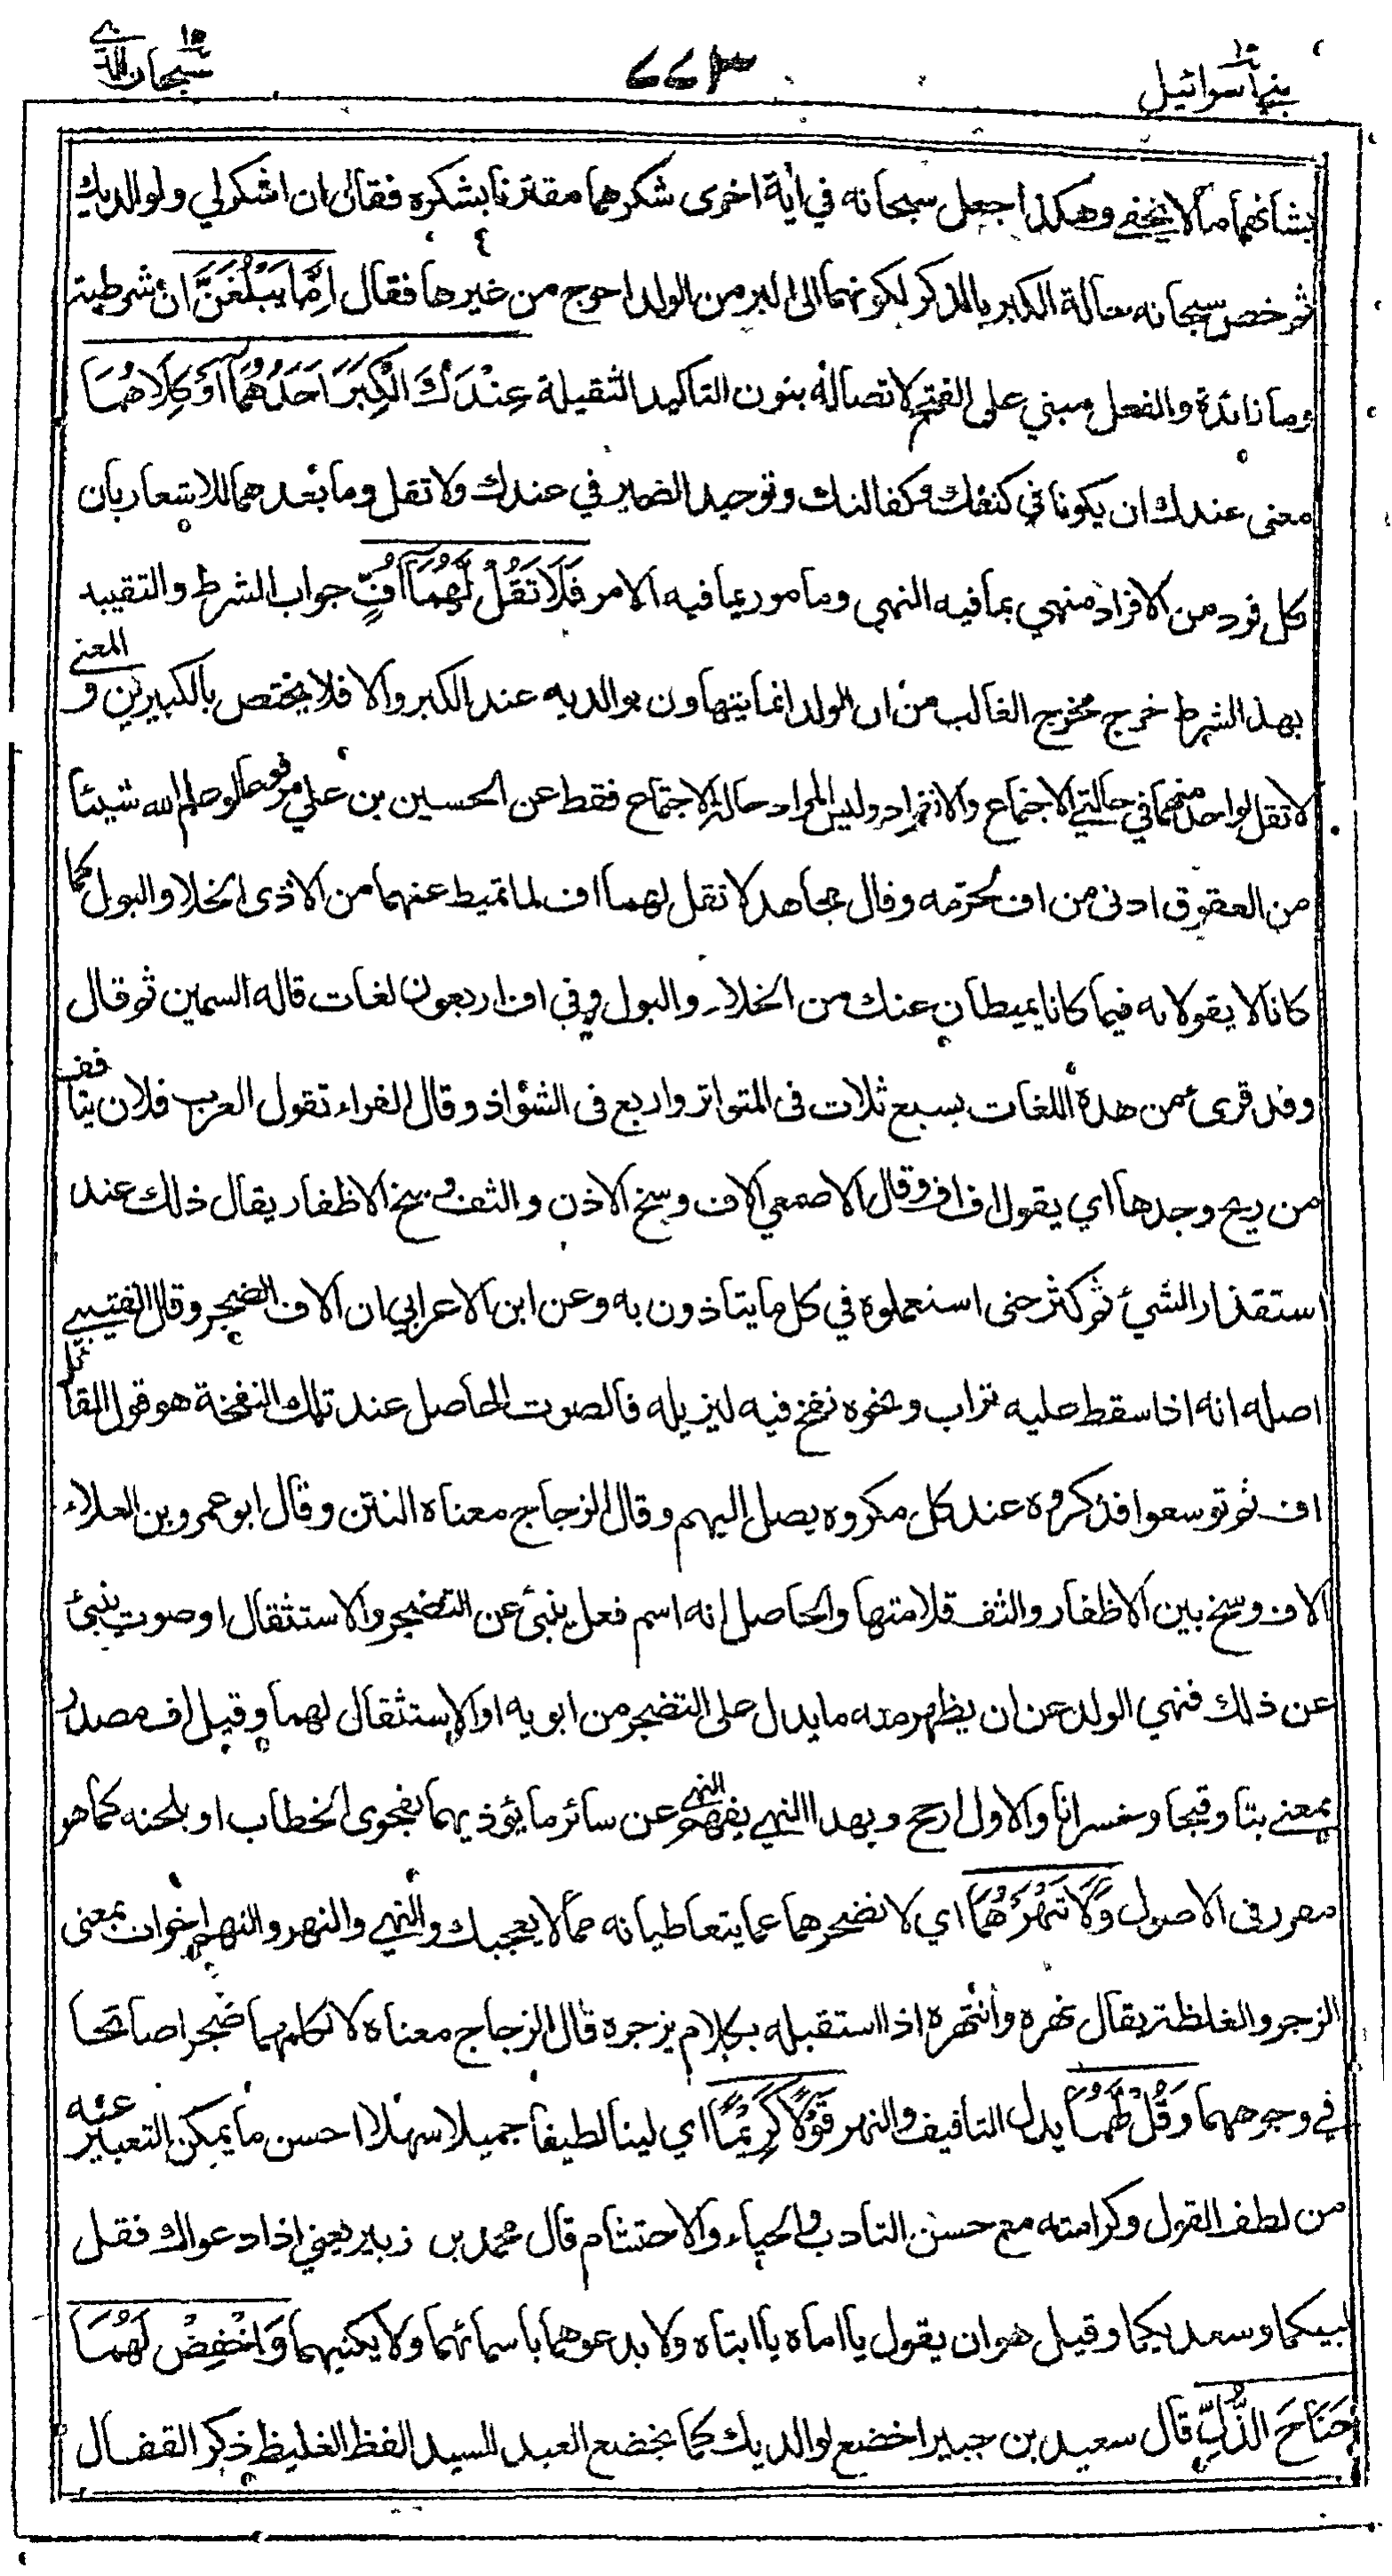 بنی اسرائیل ١٧
٦٦٣
سبحان الذی ١٥
بشانهما ما لا يخفى وهكذا جعل سبحانه في أية اخرى شكرهما مقترنا بشكره فقال ان اشكر لي ولوالديك
ثم خص سبحانه حالة الكبر بالذكر لكونهما الى البر من الولد احوج من غيرها فقال اِمَّا يَبْلُغَنَّ ان شرطية
وما زائدة والفعل مبني على الفتح لاتصاله بنون التاكيد الثقيلة عِنْدَكَ الْكِبَرَ اَحَدُهُمَا اَوْ كِلَاهُمَا
معنى عندك ان يكونا في كنفك وكفالتك وتوحيد الضمير في عندك ولا تقل وما بعدهما للاشعار بان
كل فرد من الافراد منهي بما فيه النهي ومامور بما فيه الامر فَلَا تَقُلْ لَّهُمَا اُفٍّ جواب الشرط والتقييد
بهذا الشرط خرج مخرج الغالب من ان الولد انما يتهاون بوالديه عند الكبر والا فلا يختص بالكبيرين والمعنى
لا تقل لواحد منهما في حالتي الاجتماع والانفراد وليس المراد حالة الاجتماع فقط عن الحسين بن علي مرفوعا لو علم الله شيئا
من العقوق ادنى من اف لحرّمه وقال مجاهد لا تقل لهما اف لما تميط عنهما من الاذى الخلا والبول كما
كانا لا يقولانه فيما كانا يميطان عنك من الخلاء والبول وفي اف اربعون لغات قاله السمين ثم قال
وقد قرئ من هذه اللغات بسبع ثلاث في المتواتر واربع في الشواذ وقال الفراء تقول العرب فلان يتافف
من ريح وجدها اي يقول اف اف وقال الاصمعي الاف وسخ الاذن والثف وسخ الاظفار يقال ذلك عند
استقذار الشيء ثم كثر حتى استعملوه في كل ما يتاذون به وعن ابن الاعرابي ان الاف الضجر وقال القتيبي
اصله انه اذا سقط عليه تراب ونحوه نفخ فيه ليزيله فالصوت الحاصل عند تلك النفخة هو قول القائل
اف ثم توسعوا فذكروه عند كل مكروه يصل اليهم وقال الزجاج معناه النتن وقال ابو عمرو بن العلاء
الاف وسخ بين الاظفار والثف قلامتها والحاصل انه اسم فعل ينبئ عن التضجر والاستثقال او صوت ينبئ
عن ذلك فنهي الولد عن ان يظهر منه ما يدل على التضجر من ابويه او الاستثقال لهما وقيل اف مصدر
بمعنى بتا وقبحا وخسرانا والاول ارجح وبهذا النهي يفهم النهي عن سائر ما يؤذيهما بفحوى الخطاب او بلحنه كما هو
مقرر في الاصول وَلَا تَنْهَرْهُمَا اي لا تضجرهما عما يتعاطيانه مما لا يعجبك والنهي والنهر والنهم اخوان بمعنى
الزجر والغلظة يقال نهره وانتهره اذا استقبله بكلام يزجره قال الزجاج معناه لا تكلمهما ضجرا صائحا
في وجوههما وَقُلْ لَّهُمَا بدل التافيف والنهر قَوْلًا كَرِيْمًا اي لينا لطيفا جميلا سهلا احسن ما يمكن التعبير عنه
من لطف القول وكرامته مع حسن التادب والحياء والاحتشام قال محمد بن زبير يعني اذا دعواك فقل
لبيكما وسعديكما وقيل هو ان يقول يا اماه يا ابتاه ولا يدعوهما باسمائهما ولا يكنيهما وَاخْفِضْ لَهُمَا
جَنَاحَ الذُّلِّ قال سعيد بن جبير اخضع لوالديك كما يخضع العبد للسيد الفظ الغليظ ذكر القفال